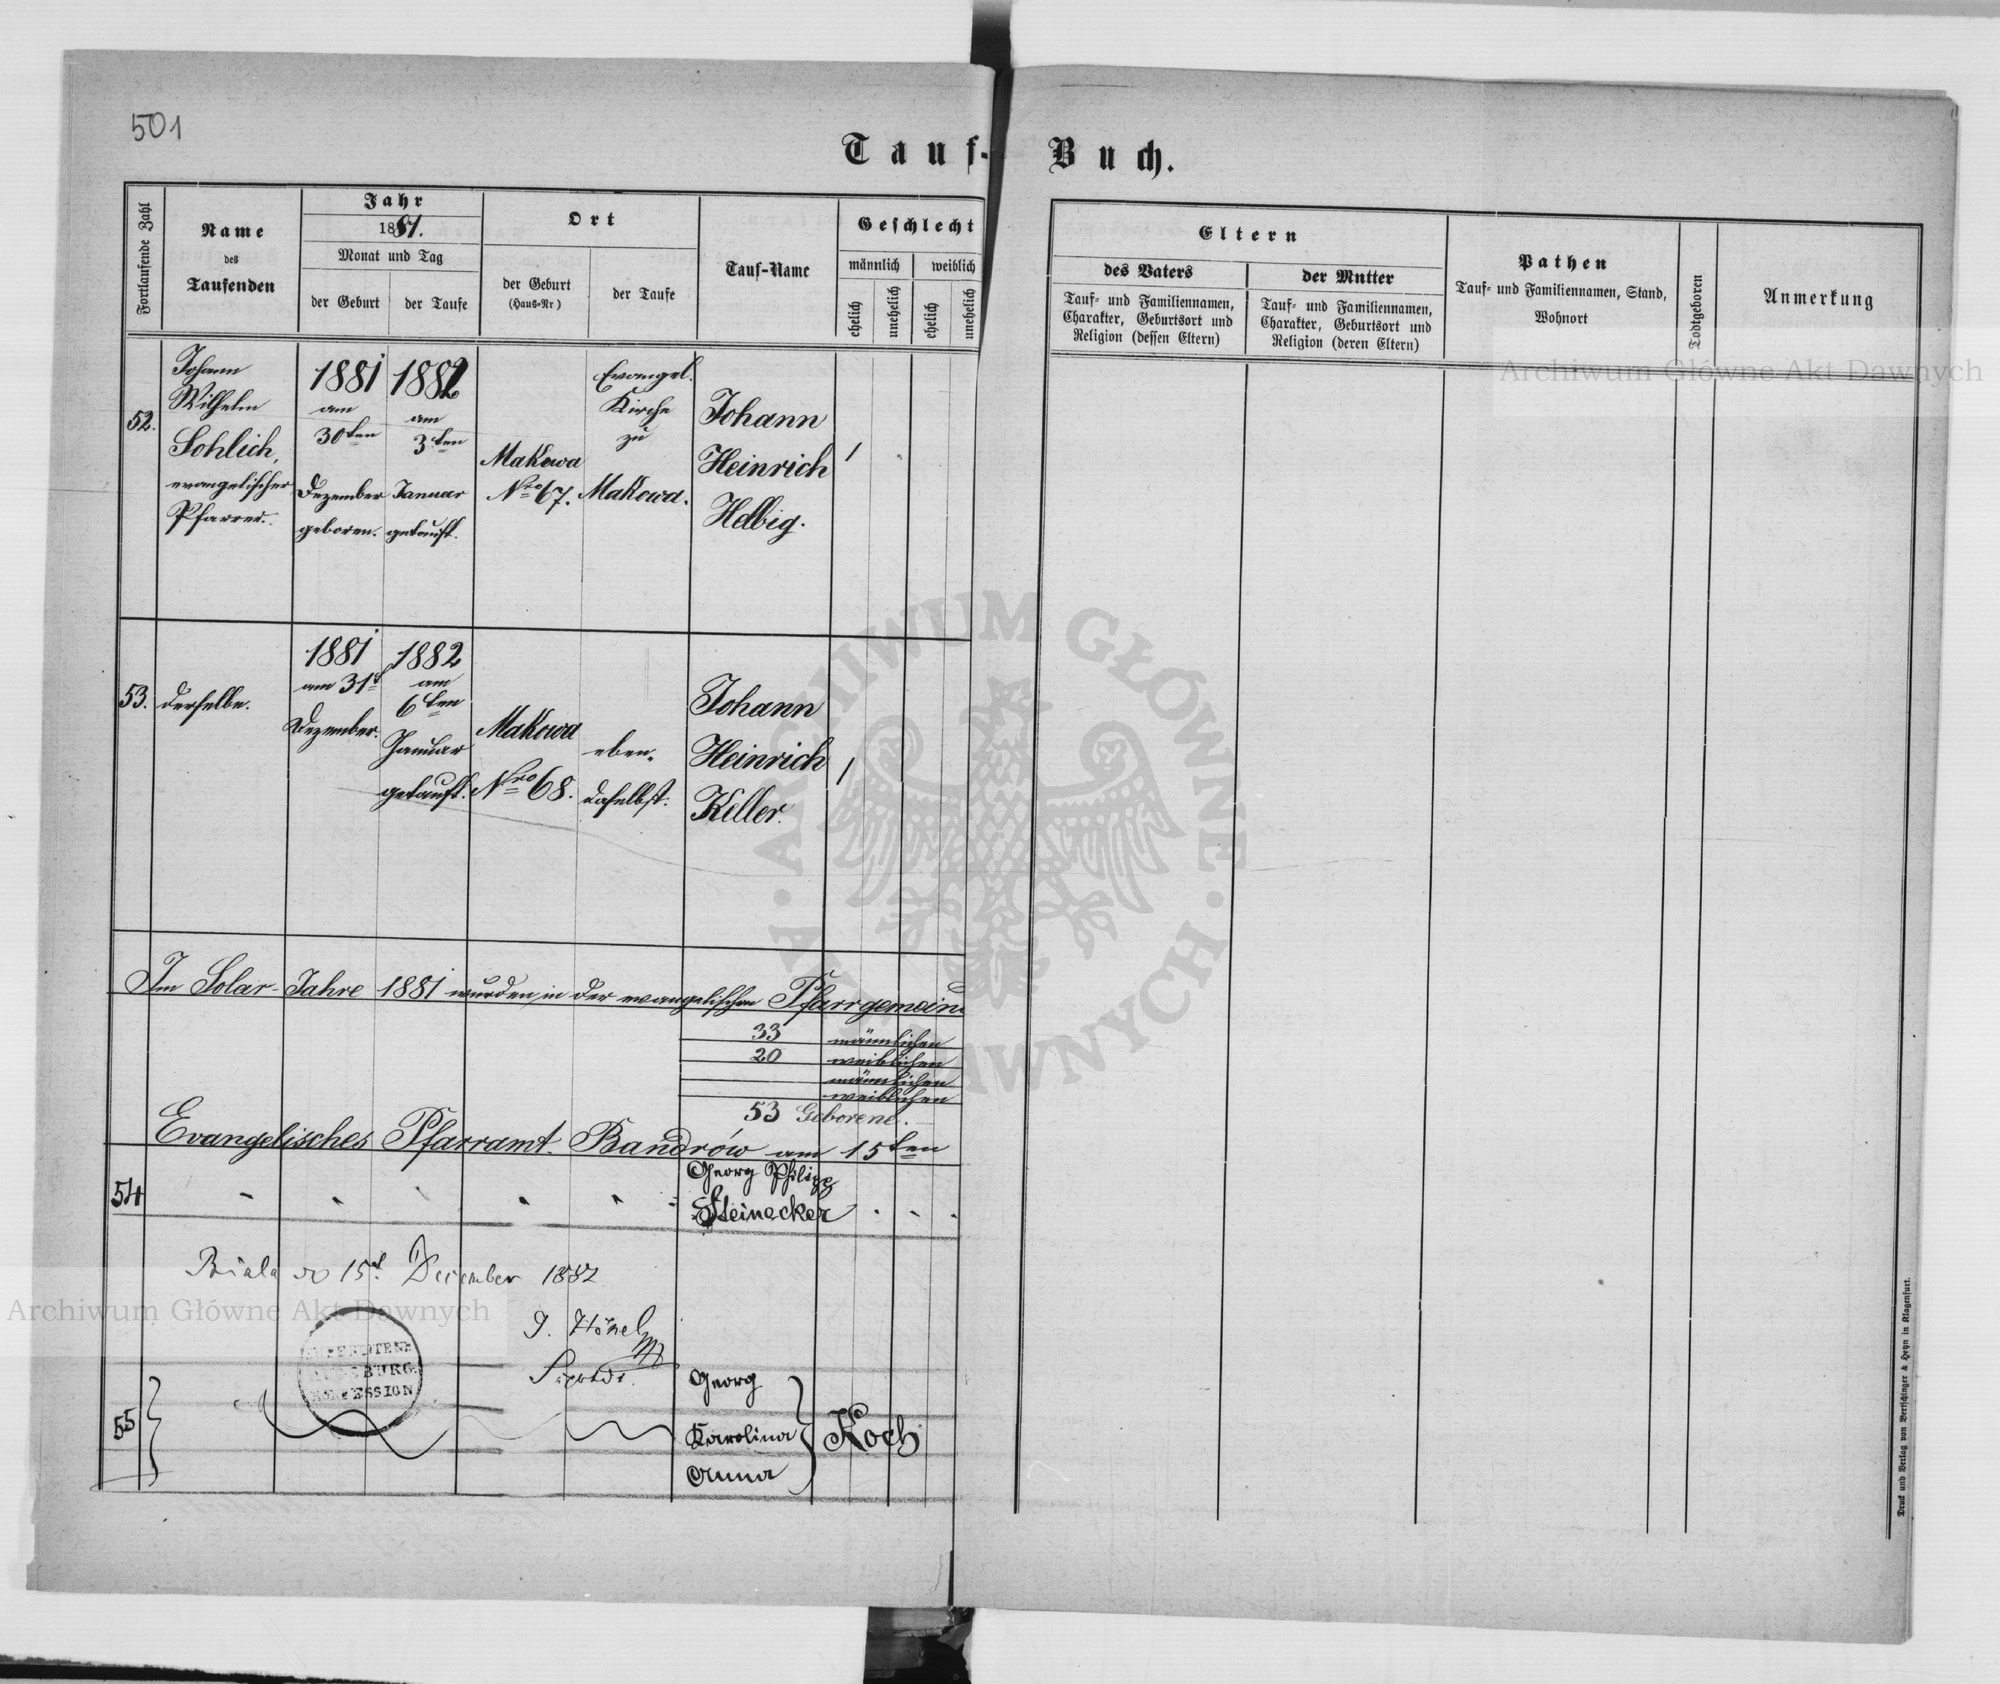 501
Tauf-Buch.
Fortlaufende Zahl
Name
des
Taufenden
Jahr
1881.
Monat und Tag
der Geburt
der Taufe
Ort
der Geburt
(Haus-Nr)
der Taufe
Tauf-Name
Geschlecht
männlich
weiblich
ehelich
unehelich
ehelich
unehelich
Eltern
des Vaters
Tauf- und Familiennamen,
Charakter, Geburtsort und
Religion (dessen Eltern)
der Mutter
Tauf- und Familiennamen,
Charakter, Geburtsort und
Religion (deren Eltern)
Pathen
Tauf- und Familiennamen, Stand,
Wohnort
Todtgeboren
Anmerkung
52.
Johann
Wilhelm
Sohlich,
evangelischer
Pfarrer.
1881
am
30ten
Dezember
geboren.
1882
am
3ten
Januar
getauft.
Makowa
Nro 67.
Evangel.
Kirche
zu
Makowa.
Johann
Heinrich
Helbig.
1
53.
derselbe.
1881
am 31t
Dezember.
1882
am
6ten
Januar
getauft.
Makowa
Nro 68.
eben-
daselbst.
Johann
Heinrich
Keller.
1
Im Solar-Jahre 1881 wurden in der evangelischen Pfarrgemein
33 männlichen
20 weiblichen
männlichen
weiblichen
53 Geborene.
Evangelisches Pfarramt. Bandrów am 15ten
54
Georg Philipp
Steinecker
Biala 15t December 1882
J. Hönel
55
Georg
Karolina
Anna
Koch
CONFESSION
Druck und Verlag von Bertschinger & Heyn in Klagenfurt.
Archiwum Główne Akt Dawnych
Archiwum Główne Akt Dawnych
ARCHIWUM GŁÓWNE AKT DAWNYCH